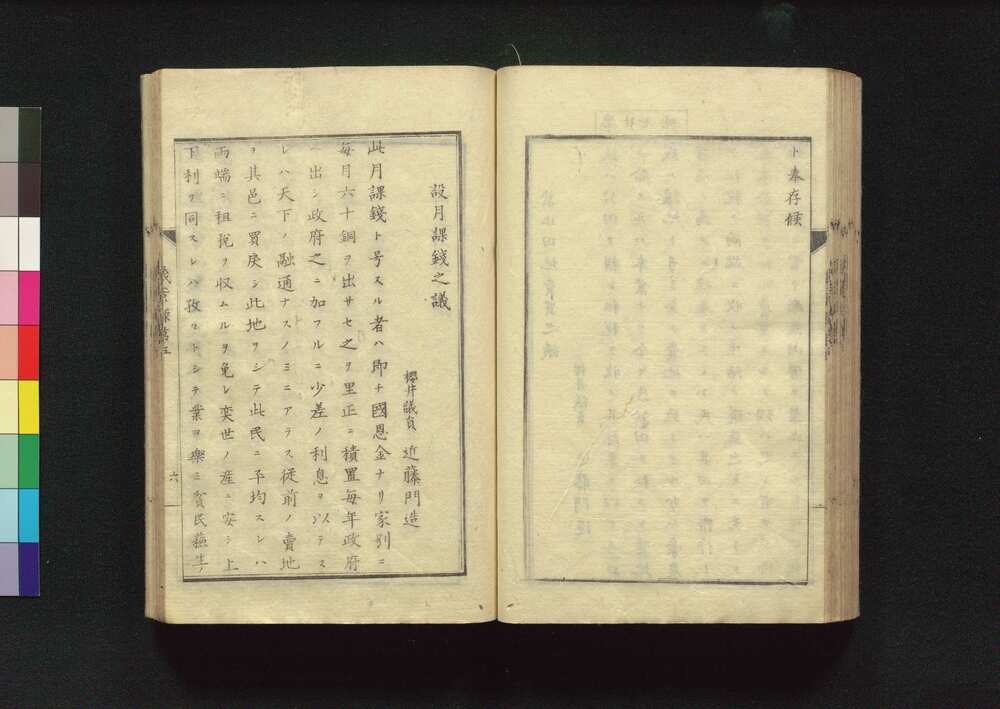 ト奉存候
設月課錢之議
櫻井議員 近藤門造
此月課錢ト号スル者ハ即チ國恩金ナリ家別ニ
毎月六十銅ヲ出サセ之ヲ里正ニ積置毎年政府
ヘ出シ政府之ニ加フルニ少差ノ利息ヲ以テス
レハ天下ノ融通ナスノミニアラス従前ノ賣地
ヲ其邑ニ買戻シ此地ヲシテ此民ニ平均スレハ
両端ニ租税ヲ収ムルヲ免レ奕世ノ産ニ安シ上
下利ヲ同スレハ孜々トシテ業ヲ樂ミ貧民蘇生ノ
六